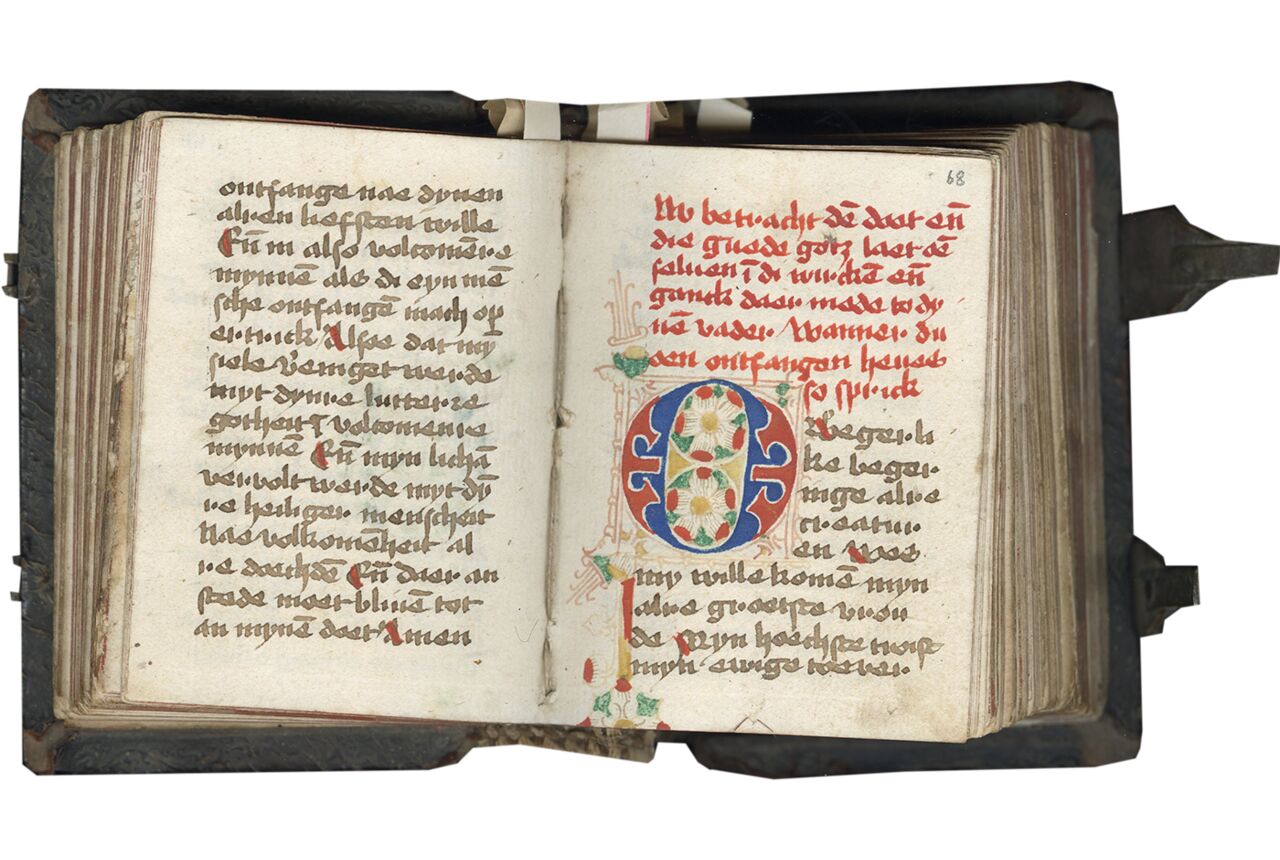 ontfange nae dynen
alren liefsten wille
Eñ in also volcomēre
mynnē als di eyn mē
sche ontfangē mach op̄
ertrick Alsoe dat mȳ
siele vereniget werde
myt dynre lutterre
gotheit ī volcomenre
mynnē Eñ myn lichā
vervolt werde myt dȳ
re heiliger menscheit
Nae volkomēheit al
re doechdē Eñ daer an
stede moet bliuē tot
an mynē doet Amen
68
Nv betracht dē doet eñ
die guede gotz laet dē
seluen ī di wirckē eñ
ganck daer mede to dy
nē vader Wanner du
oen ontfangen heues
so sprick
O Begerli
ke beger
nige alre
creatur
en Wes
my willekomē myn
alre groetste vrou
de Myn hoechste troist
myn ewige toever